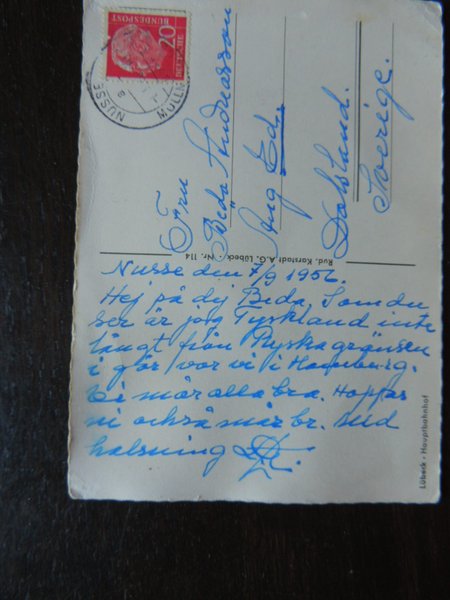 20
DEUTSCHE
BUNDESPOST
NUSSE
MÖLLN
Fru
Beda Andreasson
Ed.
Dalsland.
Sverige.
Rud. Karstadt A.G. Lübeck · Nr. 114
Nusse den 7/9 1956
Hej på dej Beda. Som du
ser är jag Tyskland inte
långt från Ryska gränsen
i går var vi i Hamburg.
Vi mår alla bra. Hoppas
ni också mår br. med
halsning
Lübeck · Hauptbahnhof